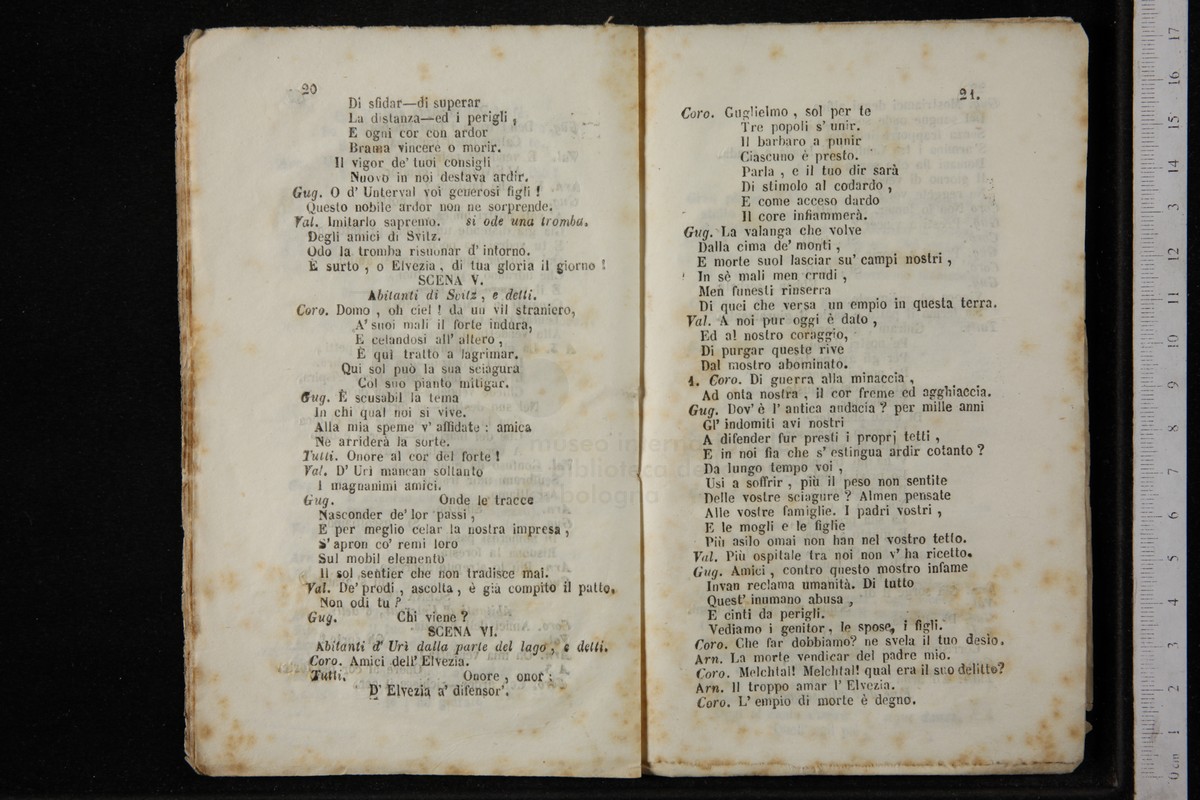 20
Di sfidar—di superar
La distanza—ed i perigli ,
E ogni cor con ardor
Brama vincere o morir.
Il vigor de' tuoi consigli
Nuovo in noi destava ardir.
Gug. O d' Unterval voi generosi figli !
Questo nobile ardor non ne sorprende.
Val. Imitarlo sapremo. si ode una tromba.
Degli amici di Svitz.
Odo la tromba risuonar d' intorno.
È surto , o Elvezia , di tua gloria il giorno !
SCENA V.
Abitanti di Svitz , e detti.
Coro. Domo , oh ciel ! da un vil straniero,
A' suoi mali il forte indura,
E celandosi all' altero ,
È qui tratto a lagrimar.
Qui sol può la sua sciagura
Col suo pianto mitigar.
Gug. È scusabil la tema
In chi qual noi si vive.
Alla mia speme v' affidate : amica
Ne arriderà la sorte.
Tutti. Onore al cor del forte !
Val. D' Uri mancan soltanto
I magnanimi amici.
Gug. Onde le tracce
Nasconder de' lor passi ,
E per meglio celar la nostra impresa ,
S' apron co' remi loro
Sul mobil elemento
Il sol sentier che non tradisce mai.
Val. De' prodi , ascolta , è già compito il patto.
Non odi tu ?
Gug. Chi viene ?
SCENA VI.
Abitanti d' Uri dalla parte del lago , e detti.
Coro. Amici dell' Elvezia.
Tutti. Onore , onor
D' Elvezia a' difensor'.
21.
Coro. Guglielmo , sol per te
Tre popoli s' unir.
Il barbaro a punir
Ciascuno è presto.
Parla , e il tuo dir sarà
Di stimolo al codardo ,
E come acceso dardo
Il core infiammerà.
Gug. La valanga che volve
Dalla cima de' monti ,
E morte suol lasciar su' campi nostri ,
In sè mali men crudi ,
Men funesti rinserra
Di quei che versa un empio in questa terra.
Val. A noi pur oggi è dato ,
Ed al nostro coraggio,
Di purgar queste rive
Dal mostro abominato.
1. Coro. Di guerra alla minaccia ,
Ad onta nostra , il cor freme ed agghiaccia.
Gug. Dov' è l' antica audacia ? per mille anni
Gl' indomiti avi nostri
A difender fur presti i proprj tetti ,
E in noi fia che s' estingua ardir cotanto ?
Da lungo tempo voi ,
Usi a soffrir , più il peso non sentite
Delle vostre sciagure ? Almen pensate
Alle vostre famiglie. I padri vostri ,
E le mogli e le figlie
Più asilo omai non han nel vostro tetto.
Val. Più ospitale tra noi non v' ha ricetto.
Gug. Amici , contro questo mostro infame
Invan reclama umanità. Di tutto
Quest' inumano abusa ,
E cinti da perigli.
Vediamo i genitor , le spose, i figli.
Coro. Che far dobbiamo? ne svela il tuo desio.
Arn. La morte vendicar del padre mio.
Coro. Melchtal! Melchtal! qual era il suo delitto?
Arn. Il troppo amar l' Elvezia.
Coro. L' empio di morte è degno.
museo interna
biblioteca de
bologna
0 cm 1 2 3 4 5 6 7 8 9 10 11 12 13 14 15 16 17